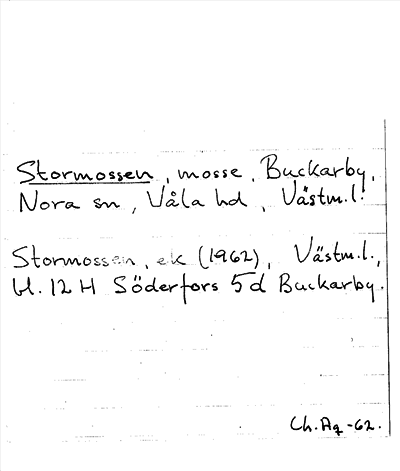 Stormossen, mosse, Buckarby,
Nora sn, Våla hd, Västm.l.
Stormossen, ek (1962), Västm.l.,
bl. 12 H Söderfors 5 d Buckarby.
Ch. Aq -62.